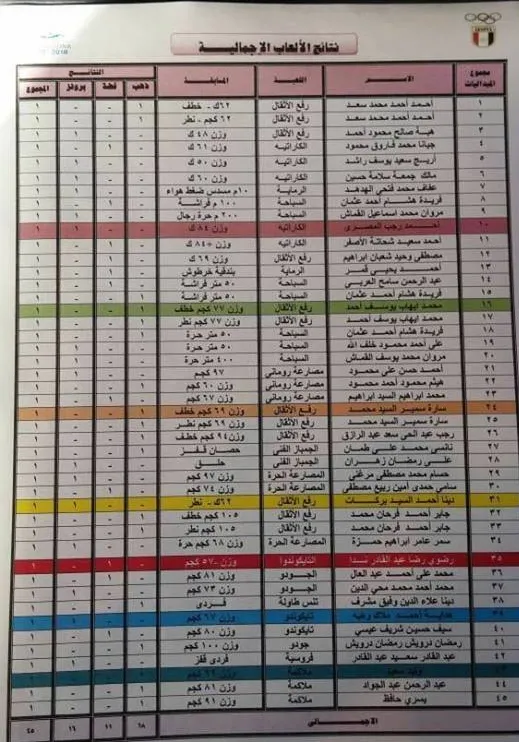 نتائج الألعاب الإجمالية
مجموع الميداليات الاسم اللعبة المسابقة النتائج
ذهب فضة برونز المجموع
١ أحمد أحمد محمد سعد رفع الأثقال ٦٢ك - خطف ١ - - ١
٢ أحمد أحمد محمد سعد رفع الأثقال ٦٢ كجم - نطر ١ - - ١
٣ هبة صالح محمود أحمد رفع الأثقال وزن ٤٨ ك
٤ جيانا محمد فاروق محمود الكاراتيه وزن ٦١ ك
٥ أريج سعيد يوسف راشد الكاراتيه وزن ٥٠ ك
٦ مالك جمعة سلامة حسين الكاراتيه وزن ٦٠ ك
٧ عفاف محمد فتحي الهدهد الرماية ١٠م مسدس ضغط هواء
٨ فريدة هشام أحمد عثمان السباحة ١٠٠ م فراشة
٩ مروان محمد اسماعيل القماش السباحة ٢٠٠ م حرة رجال
١٠ أحمد رجب المصري الكاراتيه وزن ٨٤ ك
١١ أحمد سعيد شحاتة الأصفر الكاراتيه وزن +٨٤ ك
١٢ مصطفى وحيد شعبان ابراهيم رفع الأثقال وزن ٦٩ ك
١٣ أحمد يحيى قمر الرماية بندقية خرطوش
١٤ عبد الرحمن سامح العربي السباحة ٥٠ متر فراشة
١٥ فريدة هشام أحمد عثمان السباحة ٥٠ متر فراشة
١٦ محمد ايهاب يوسف أحمد رفع الأثقال وزن ٧٧ كجم خطف
١٧ محمد ايهاب يوسف أحمد رفع الأثقال وزن ٧٧ كجم نطر
١٨ فريدة هشام أحمد عثمان السباحة ٥٠ متر حرة
١٩ على أحمد محمود خلف الله السباحة ٥٠ متر حرة
٢٠ مروان محمد يوسف القماش السباحة ٤٠٠ متر حرة
٢١ أحمد حسن على محمود مصارعة رومانى ٩٧ كجم
٢٢ هيثم محمود أحمد محمود مصارعة رومانى وزن ٦٠ كجم
٢٣ محمد ابراهيم السيد ابراهيم مصارعة رومانى وزن ٦٧ كجم
٢٤ سارة سمير السيد محمد رفع الأثقال وزن ٦٩ كجم خطف
٢٥ سارة سمير السيد محمد رفع الأثقال وزن ٦٩ كجم نطر
٢٦ رجب عبد الحى سعد عبد الرازق رفع الأثقال وزن ٩٤ كجم خطف
٢٧ نانسى محمد على طمان الجمباز الفنى حصان قفز
٢٨ على رمضان زهران الجمباز الفنى حلق
٢٩ حسام محمد مصطفى مرغنى المصارعة الحرة وزن ٩٧ كجم
٣٠ سامى حمدى أمين ربيع مصطفى المصارعة الحرة وزن ٧٤ كجم
٣١ دينا أحمد السيد بركات رفع الأثقال ٦٢ك - نطر
٣٢ جابر أحمد فرحان محمد رفع الأثقال ١٠٥ كجم خطف
٣٣ جابر أحمد فرحان محمد رفع الأثقال ١٠٥ كجم نطر
٣٤ سمر عامر ابراهيم حمزة المصارعة الحرة وزن ٦٨ كجم حرة
٣٥ رضوى رضا عبد القادر ندا التايكوندوا وزن -٥٧ كجم
٣٦ محمد على أحمد عبد العال الجودو وزن ٨١ كجم
٣٧ محمد أحمد محمد محى الدين الجودو وزن ٧٣ كجم
٣٨ دينا علاء الدين وفيق مشرف تنس طاولة فردى
٣٩ هداية أحمد ملاك وهبه تايكوندو وزن ٦٧ كجم
٤٠ سيف حسين شريف عيسى تايكوندو وزن ٨٠ كجم
٤١ رمضان درويش رمضان درويش جودو وزن ١٠٠ كجم
٤٢ عبد القادر سعيد عبد القادر فروسية فردى قفز
٤٣ وليد سعيد ملاكمة
٤٤ عبد الرحمن عبد الجواد ملاكمة وزن ٨١ كجم
٤٥ يسري حافظ ملاكمة وزن ٩١ كجم
الإجمالى ١٨ ١١ ١٦ ٤٥